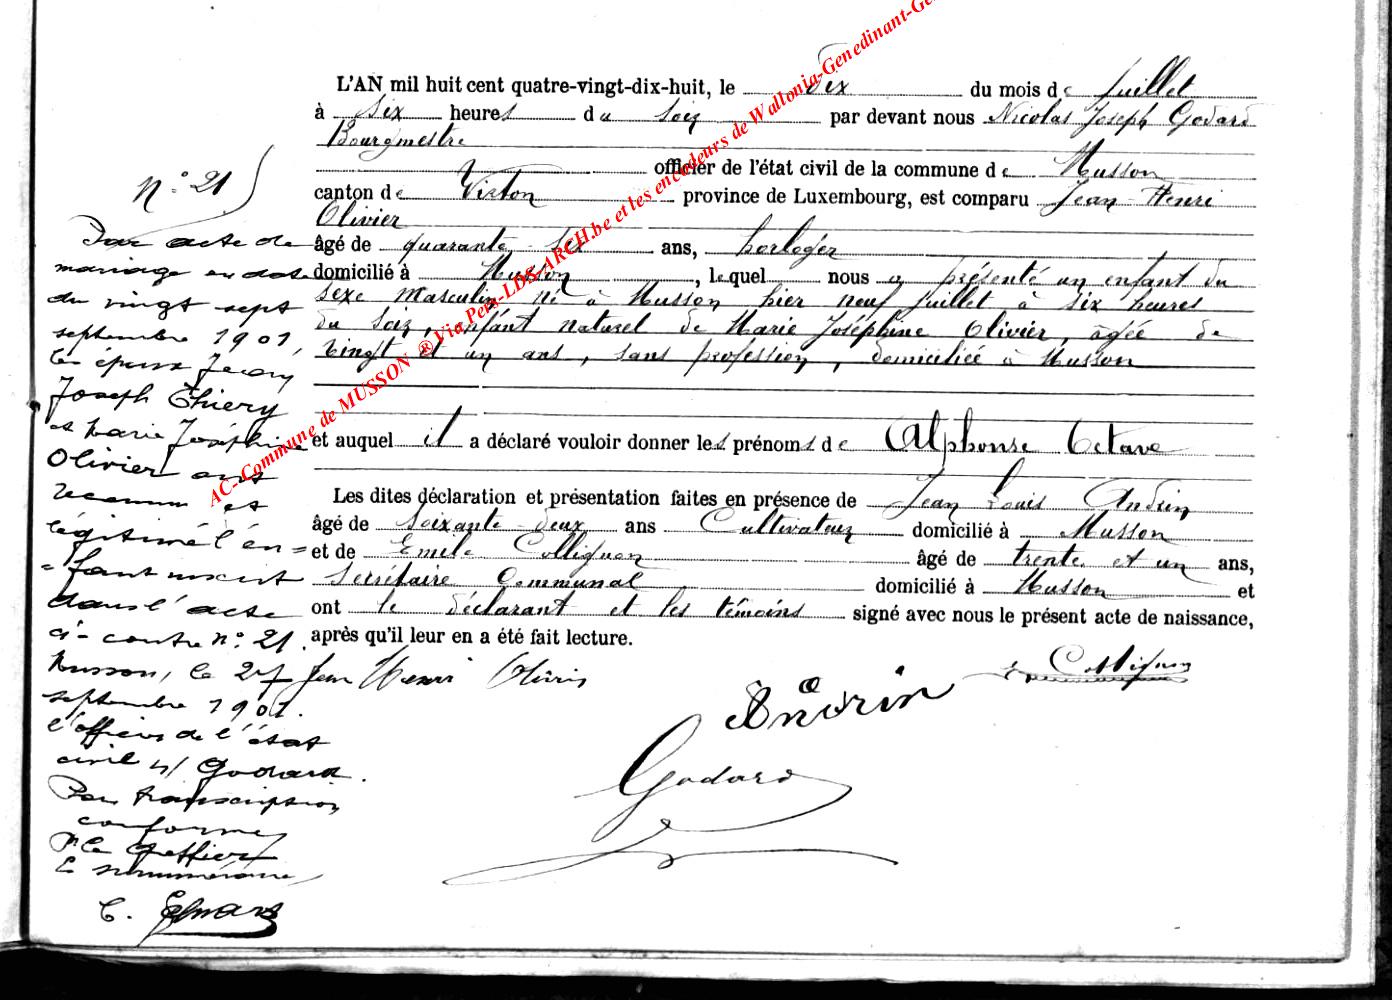 L'AN mil huit cent quatre-vingt-dix-huit, le dix du mois de juillet
à six heures du soir par devant nous Nicolas Joseph Godard
Bourgmestre
officier de l'état civil de la commune de Musson
canton de Virton province de Luxembourg, est comparu Jean-Henri
Olivier
âgé de quarante-six ans, horloger
domicilié à Musson, lequel nous a présenté un enfant du
sexe masculin né à Musson, hier neuf juillet à six heures
du soir, enfant naturel de Marie Joséphine Olivier, âgée de
vingt et un ans, sans profession, domiciliée à Musson
et auquel il a déclaré vouloir donner les prénoms de Alphonse Octave
Les dites déclaration et présentation faites en présence de Jean Louis Andrin
âgé de soixante-deux ans Cultivateur domicilié à Musson
et de Emile Collignon âgé de trente et un ans,
Secrétaire Communal domicilié à Musson et
ont le déclarant et les témoins signé avec nous le présent acte de naissance,
après qu'il leur en a été fait lecture.
Jean Henri Olivier
E Collignon
Andrin
Godard
N° 21
Par acte de
mariage en date
du vingt sept
septembre 1901,
les époux Jean
Joseph Thiery
et Marie Joséphine
Olivier ont
reconnu et
légitimé l'en=
=fant inscrit
dans l'acte
ci-contre n° 21.
Musson, le 27
septembre 1901.
l'officier de l'état
civil s/ Godard.
Pour transcription
conforme,
Pr le Greffier
Le surnuméraire,
AC-Commune de MUSSON ®Via Pers-LDS-ARCH.be et les encodeurs de Wallonia-Genedinant-Ge